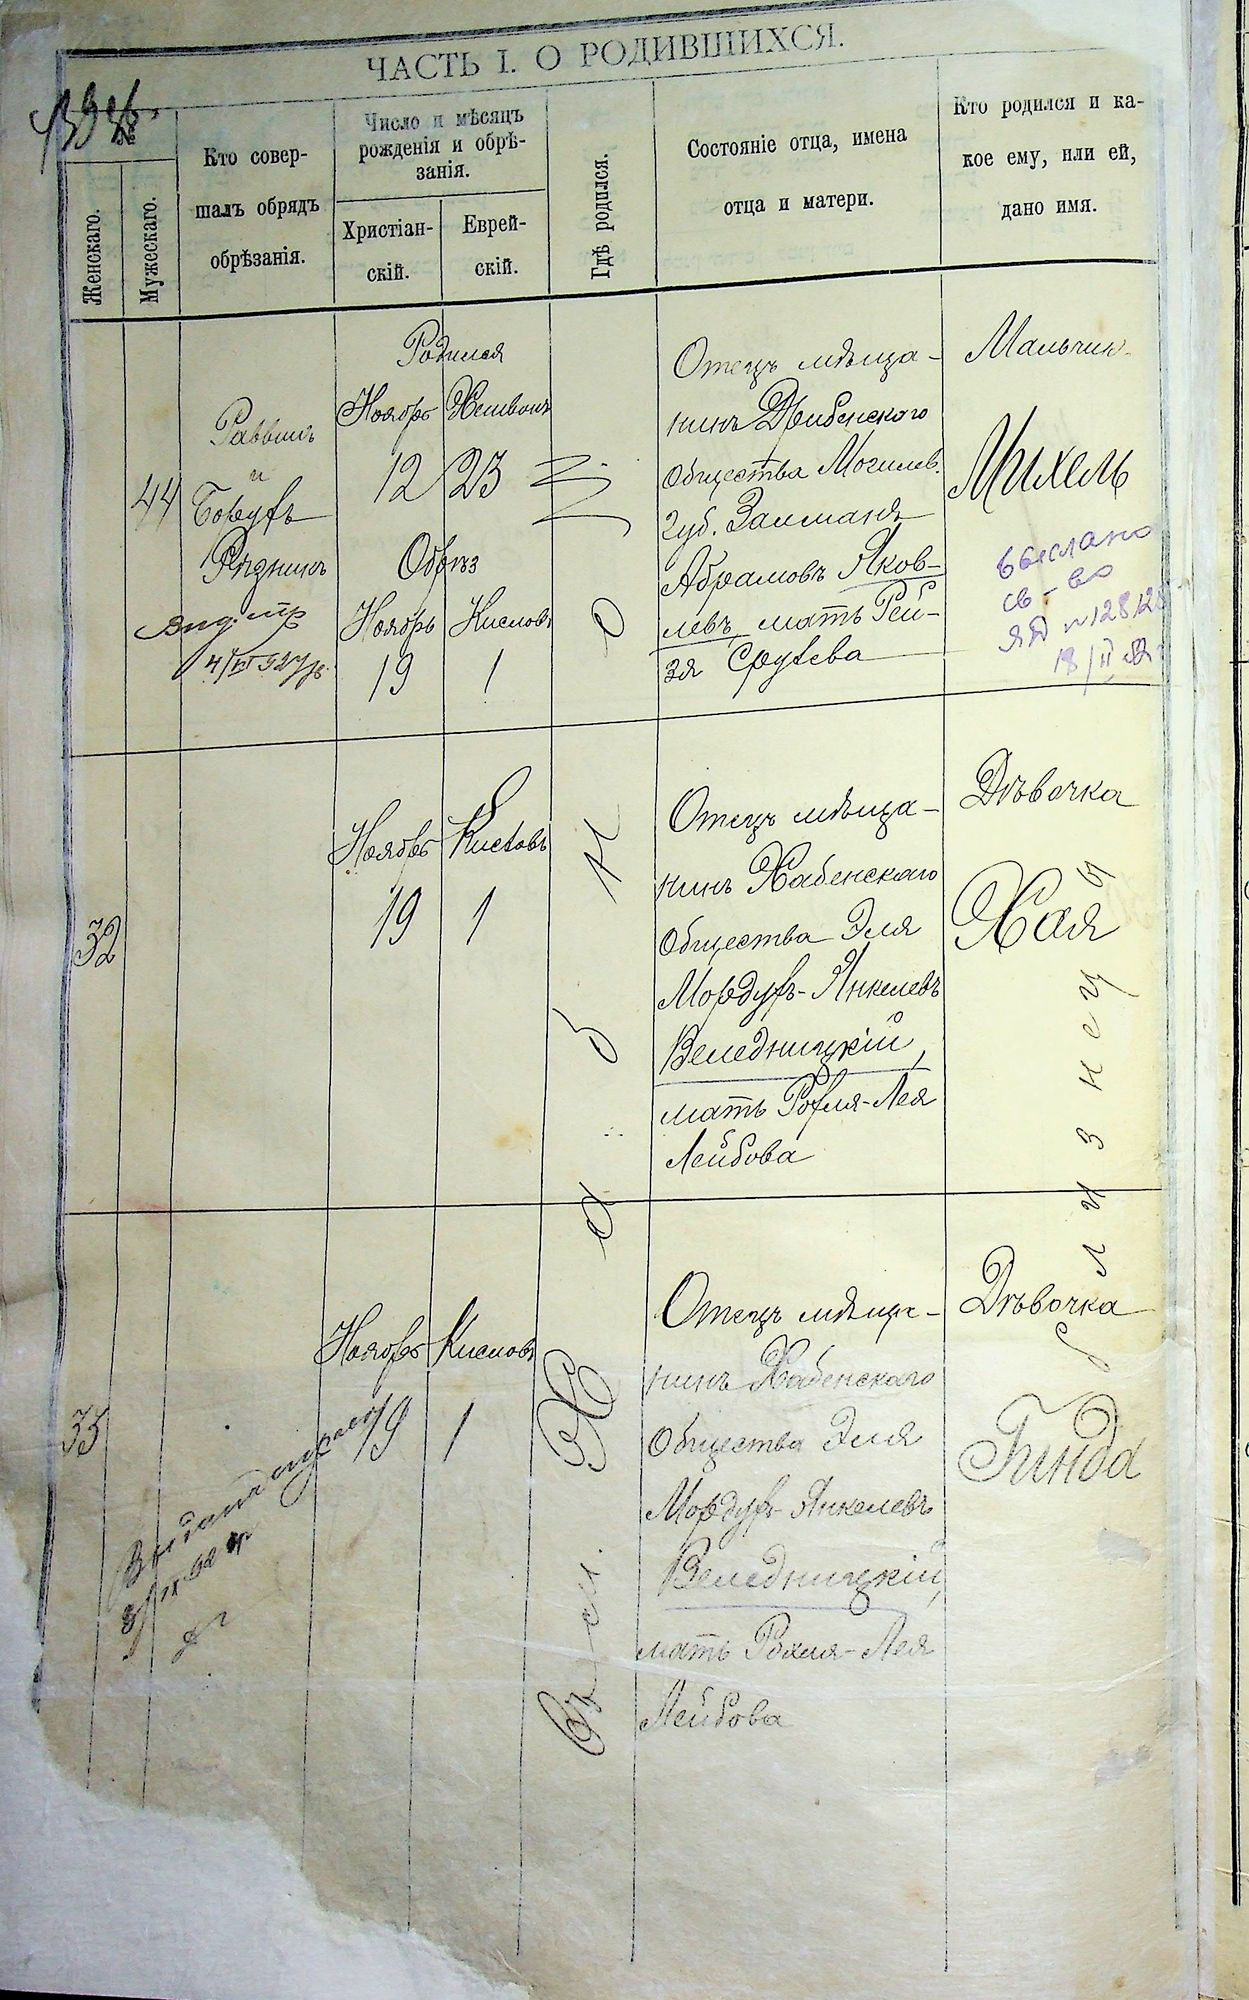 ЧАСТЬ I. О РОДИВШИХСЯ.
№
Женскаго.
Мужескаго.
Кто совер-
шалъ обрядъ
обрѣзанія.
Число и мѣсяцъ
рожденія и обрѣ-
занія.
Христіан-
скій.
Еврей-
скій.
Гдѣ родился.
Состояніе отца, имена
отца и матери.
Кто родился и ка-
кое ему, или ей,
дано имя.
44
Раввинъ
и
Борухъ
Родился
Ноябрь Хешвонъ
12 23
Обрѣз
Ноябрь Кислов
19 1
Отецъ мѣща-
нинъ Дрибенскаго
общества Могилев.
губ. Залманъ
Абрамовъ Яков-
левъ мать Рей-
зя Срулева
Мальчик
Михель
выслано
св-во
18/II
32
Ноябрь Кисловъ
19 1
Отецъ мѣща-
нинъ Хабенскаго
общества Эля
Мордухъ-Янкелевъ
Веледницкій,
мать Рохля-Лея
Лейбова
Дѣвочка
Хая
близнецы
33
Ноябрь Кисловъ
19 1
Отецъ мѣща-
нинъ Хабенскаго
общества Эля
Мордухъ-Янкелевъ
Веледницкій,
мать Рохля-Лея
Лейбова
Дѣвочка
Гинда
Въ м. Хабно